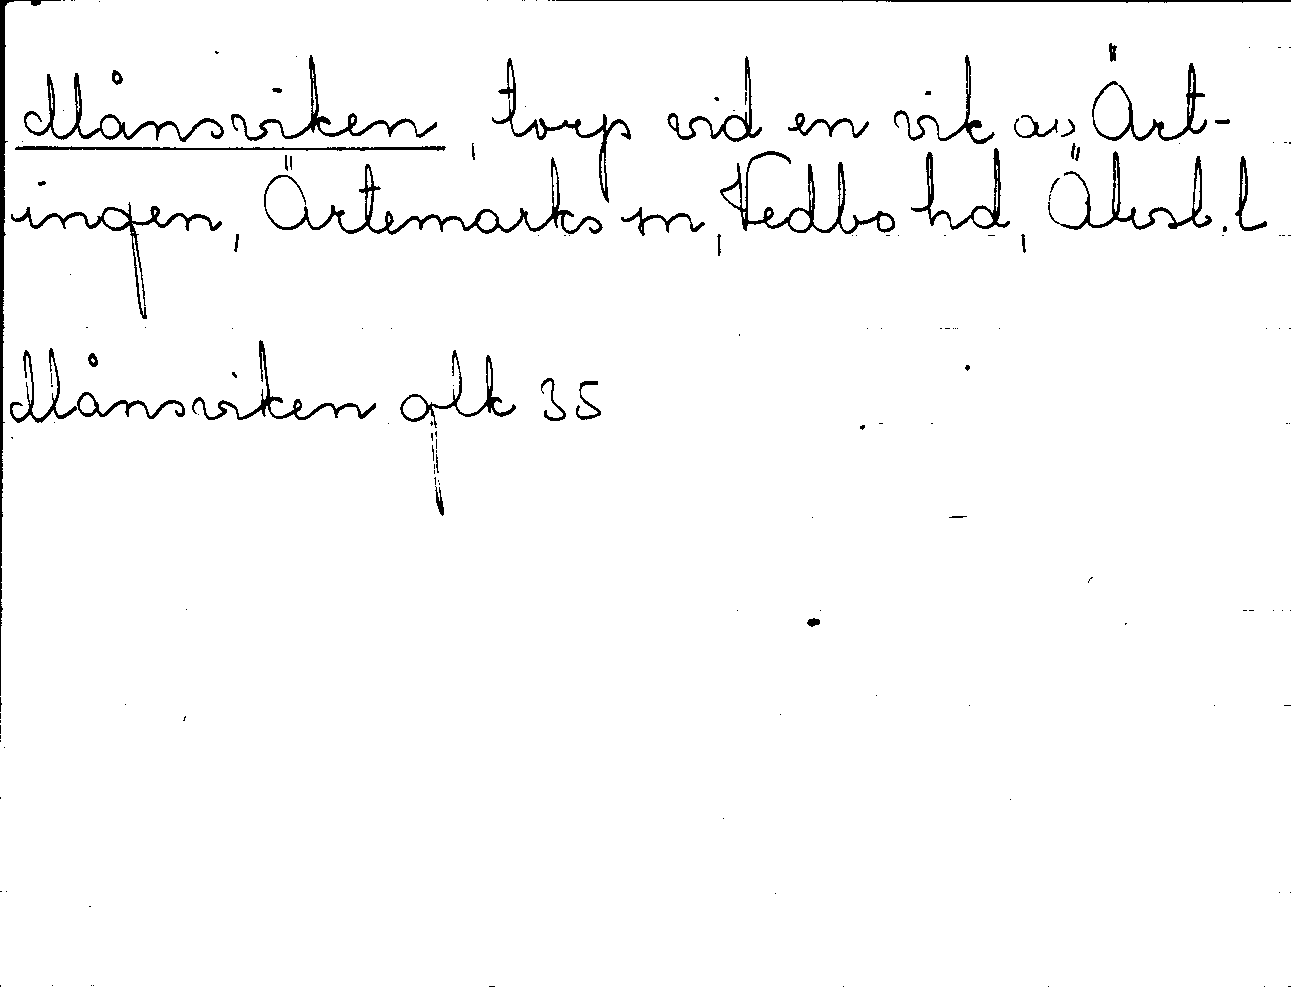 Månsviken, torp vid en vik av Ärt-
ingen, Ärtemarks sn, Vedbo hd, Älvsb. l
Månsviken glk 35